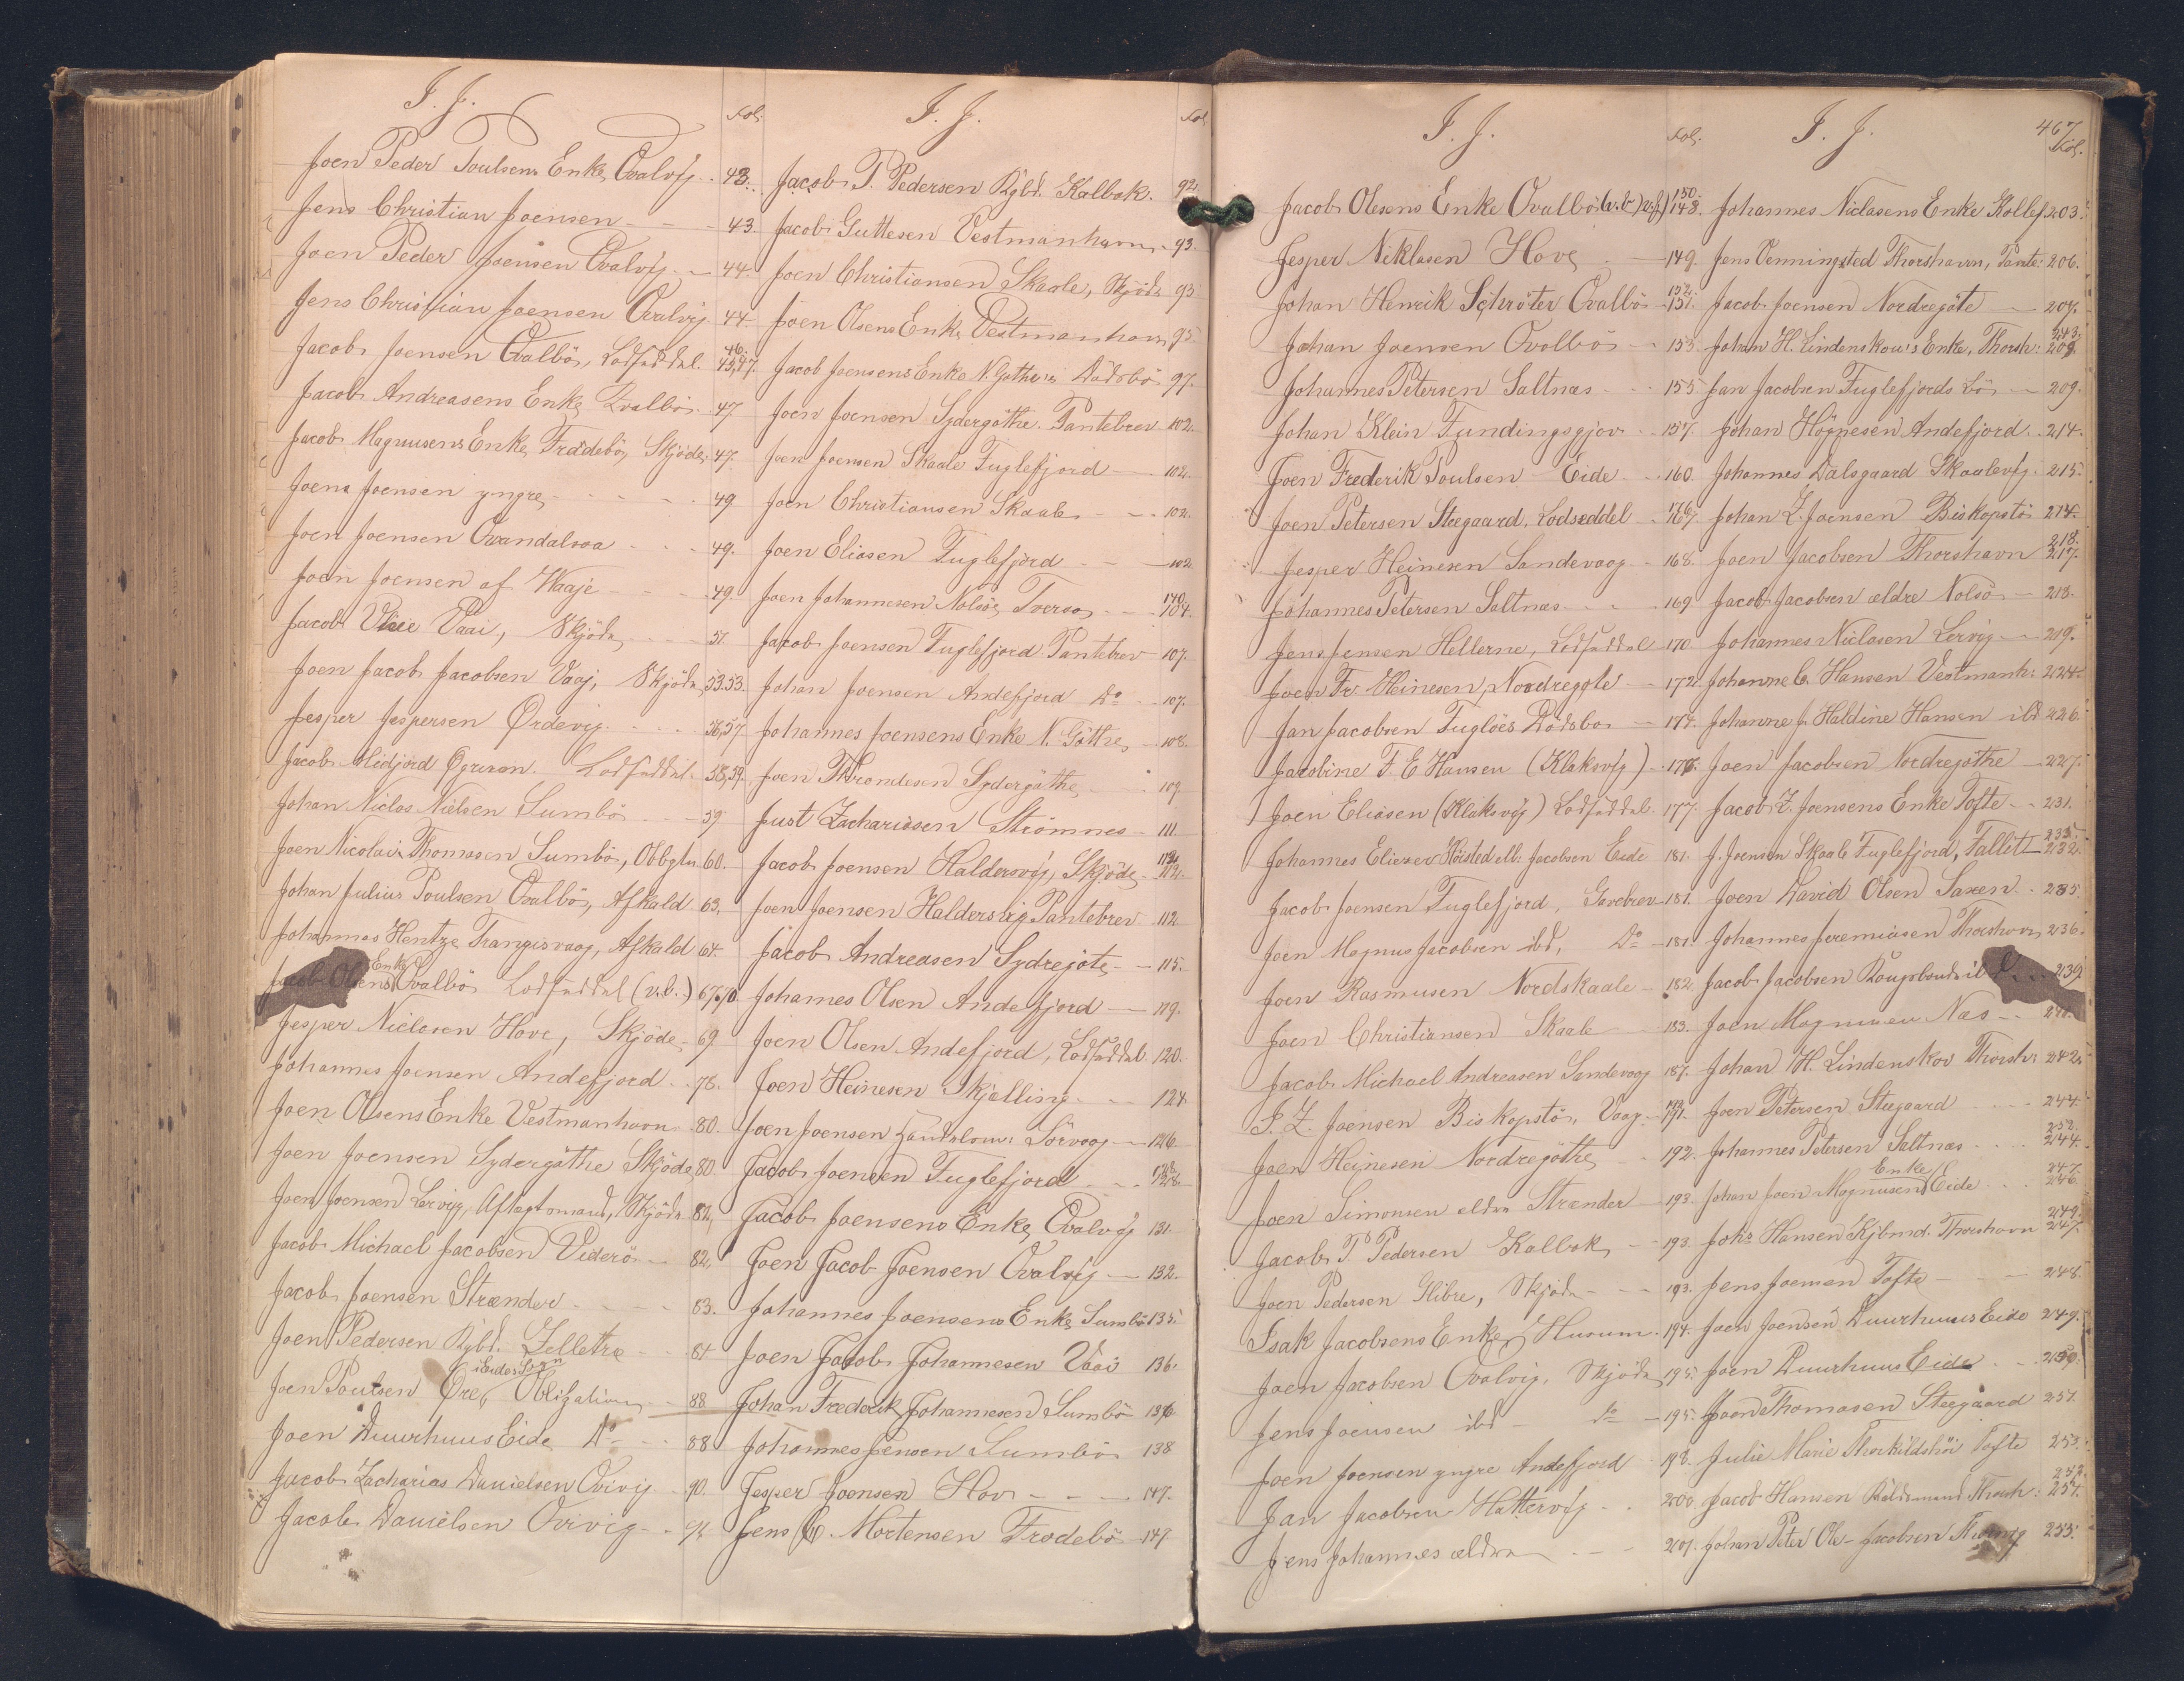 I. J.
Fol.
Joen Peder Poulsens Enke, Qvalvig 43.
Jens Christian Joensen 43.
Joen Peder Joensen Qvalvig 44.
Jens Christian Joensen Qvalvig 44
Jacob Joensen Qvalbö, Lodseddel. 46. 45,47.
Jacob Andreasens Enke Qvalbö 47
Jacob Magnusens Enke, Frodebö, Skjöde 47
Joen Joensen yngre 49
Joen Joensen 49.
Joen Joensen af Waaje 49
Jacob Vaai, Skjöde 51
Joen Jacob Jacobsen Vaaj, Skjöde 53.53.
Jesper Jespersen Ördevig 56,57
Jacob Midjord Lodseddel. 58,59.
Johan Niclas Nielsen Sumbö 59
Joen Nicolai Thomasen Sumbö, Obbgtn 60.
Johan Julius Poulsen Qvalbö, Afkald 63.
Johannes Hentze Trangisvaag, Afkald 64.
Jacob Olsens Enke Qvalbö Lodseddel (v.b.) 67,70.
Jesper Niclasen Hove, Skjöde 69
Johannes Joensen Andefjord 78.
Joen Olsens Enke Vestmanhavn 80.
Joen Joensen Sydergöthe Skjöde 80.
Joen Joensen Lervig, Aftagtsmand, Skjöde 82.
Jacob Michael Jacobsen Viderö 82.
Jacob Joensen Strænder 83.
Joen Pedersen Kgbd. Zelletræ 84
Joen Poulsen Öre, i Eides Sogn Obligation 88
Joen Duurhuus Eide Do 88
Jacob Zacharias Danielsen Qvivig 90.
Jacob Danielsen Qvivig 91
I. J.
Fol.
Jacob P. Pedersen Kgbd. Kalbak. 92.
Jacob Guttesen Vestmanhavn 93.
Joen Christiansen Skaale, Skjöde 93
Joen Olsens Enke, Vestmanhavn 95.
Jacob Joensens Enke N. Gøthe's Dödsbo 97.
Joen Joensen Sydergöthe. Pantebrev 102.
Joen Joensen Skaale Fuglefjord 102.
Joen Christiansen Skaale 102.
Joen Eliasen Fuglefjord 102.
Joen Johannesen Nolsöe, Tveraa 140. 104.
Jacob Joensen Fuglefjord Pantebrev 107.
Johan Joensen Andefjord Do 107.
Johannes Joensens Enke N. Göthe 108.
Joen Throndesen Sydergöthe 109
Just Zachariasen Strömnes 111
Jacob Joensen Haldersvig, Skjöde 112.
Joen Joensen Haldersvig Pantebrev 112
Jacob Andreasen Sydrejöte 115.
Johannes Olsen Andefjord 119.
Joen Olsen Andefjord, Lodseddel 120.
Joen Heinesen Skjelling 124.
Joen Joensen Sörvaag 126
Jacob Joensen Fuglefjord 128.
Jacob Joensens Enke, Qvalvig 131.
Joen Jacob Joensen Qvalvig 132.
Johannes Joensens Enke Sumbö 135.
Joen Jacob Johannesen Vaai 136.
Johan Frederik Johannesen Sumbö 136
Johannes Jensen Sumbö 138
Jesper Joensen Hov 147.
Jens C. Mortensen Frodebö 147
I. J.
Fol.
Jacob Olesens Enke Qvalbö (v.b.) 150. 148.
Jesper Niklasen Hove 149.
Johan Henrik Schröter Qvalbö 152. 151.
Johan Joensen Qvalbö 153.
Johannes Petersen Saltnæs 155
Johan Klein Fundingsgjov 157.
Joen Frederik Poulsen Eide 160.
Joen Petersen Steegaard, Lodseddel 176. 167.
Jesper Heinesen Sandevaag 168.
Johannes Petersen Saltnæs 169
Jens Jensen Hellerne, Lodseddel 170
Joen Fr. Heinesen, Nordregöte 172.
Jan Jacobsen Fuglöes Dödsbo 174.
Jacobine F. E. Hansen (Klaksvig) 176.
Joen Eliasen (Klaksvig) Lodseddel. 177.
Johannes Eliezer Höisted ell. Jacobsen Eide 181.
Jacob Joensen Fuglefjord, Gavebrev 181.
Joen Magnus Jacobsen ibd, Do 181.
Joen Rasmusen Nordskaale 182.
Joen Christiansen Skaale 183.
Jacob Michael Andreasen Sandevaag 187.
J. Z. Joensen Biskopstö, Vaag 191.
Joen Heinesen Nordregöthe 192.
Joen Simonsen ældre Strænder 193.
Jacob P. Pedersen Kalbak 193.
Joen Pedersen Glibre, Skjöde 193.
Isak Jacobsens Enke, Husum 194.
Joen Jacobsen Qvalvig, Skjöde 195.
Jens Joensen ibd do 195.
Joen Joensen yngre Andefjord 198.
Jan Jacobsen Hattervig 200.
Jens Johannes ældre 201.
I. J.
467
Fol.
Johannes Niclasens Enke Kollef. 203.
Jens Venningsted Thorshavn, Pante: 206.
Jacob Joensen Nordregöte 207.
Johan H. Lindenskov's Enke, Thorsh: 243. 208.
Jan Jacobsen Fuglefjords Bö 209.
Johan Högnesen Andefjord 214.
Johannes Dalsgaard Skaalevig 215.
Johan Z. Joensen Biskopstö 214.
Joen Jacobsen Thorshavn 218. 217.
Jacob Jacobsen ældre Nolsö 218.
Johannes Niclasen Lervig 219.
Johanne C. Hansen Vestmanh: 224.
Johanne J. Haldine Hansen ibd 226.
Joen Jacobsen Nordregöthe 227.
Jacob Z. Joensens Enke Tofte 231.
J. Joensen Skaale Fuglefjord, Fallitt 235. 232.
Joen David Olsen Saxen 235.
Johannes Jeremiasen Thorshavn 236.
Jacob Jacobsen Kongsbonde 239.
Joen Magnusen Næs
Johan H. Lindenskov Thorsh: 242.
Joen Petersen Steegaard 244.
Johannes Petersen Saltnæs 252. 244.
Johan Joen Magnusens Enke Eide 247. 246.
Johs Hansen Kjbmd. Thorshavn 249. 247.
Jens Joensen Tofte 248.
Joen Joensen Duurhuus Eide 249.
Joen Duurhuus Eide 250.
Joen Thomasen Steegaard 251.
Julie Marie Thorkildshöi Tofte 253.
Jacob Hansen Thorsh: 254.
Johan Peter Ole-Jacobsen 255.